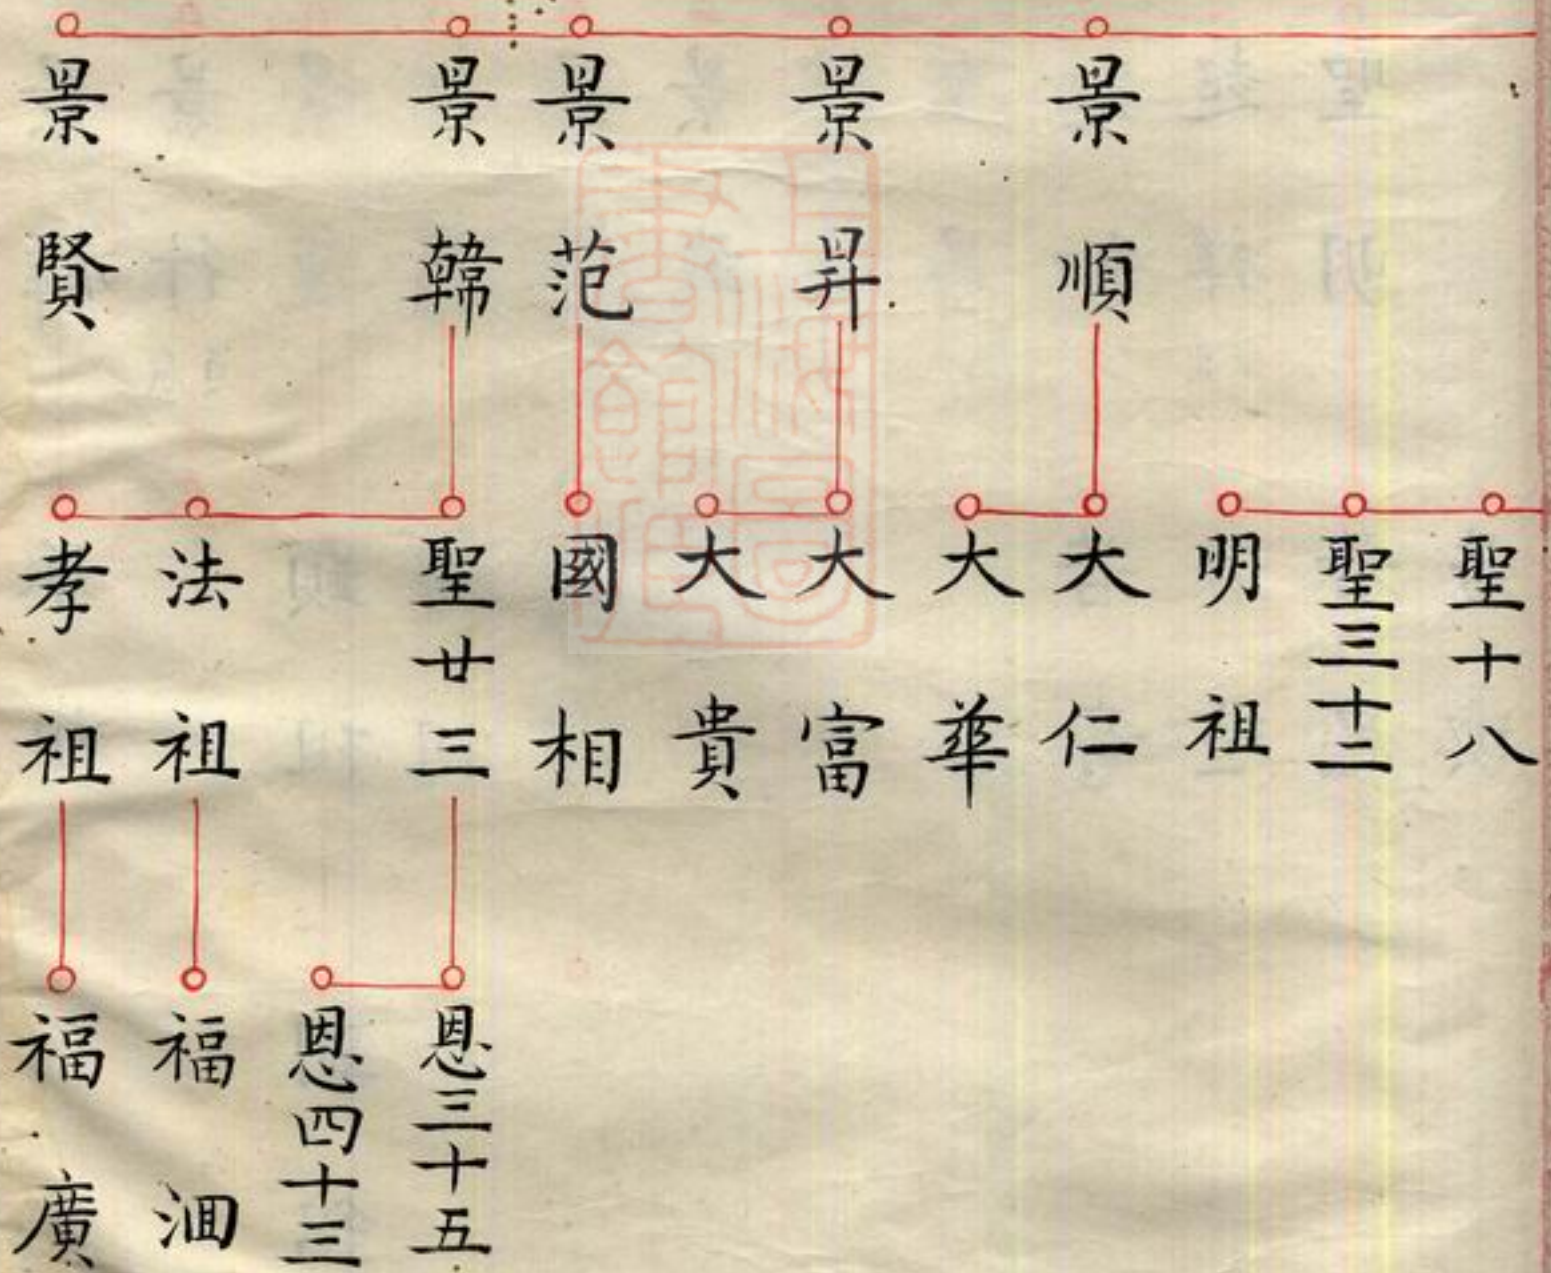 景順
景昇
景范
景韓
景賢
聖十八
聖三十二
明祖
大仁
大華
大富
大貴
國相
聖廿三
法祖
孝祖
恩三十五
恩四十三
福洄
福廣
上海圖書館藏